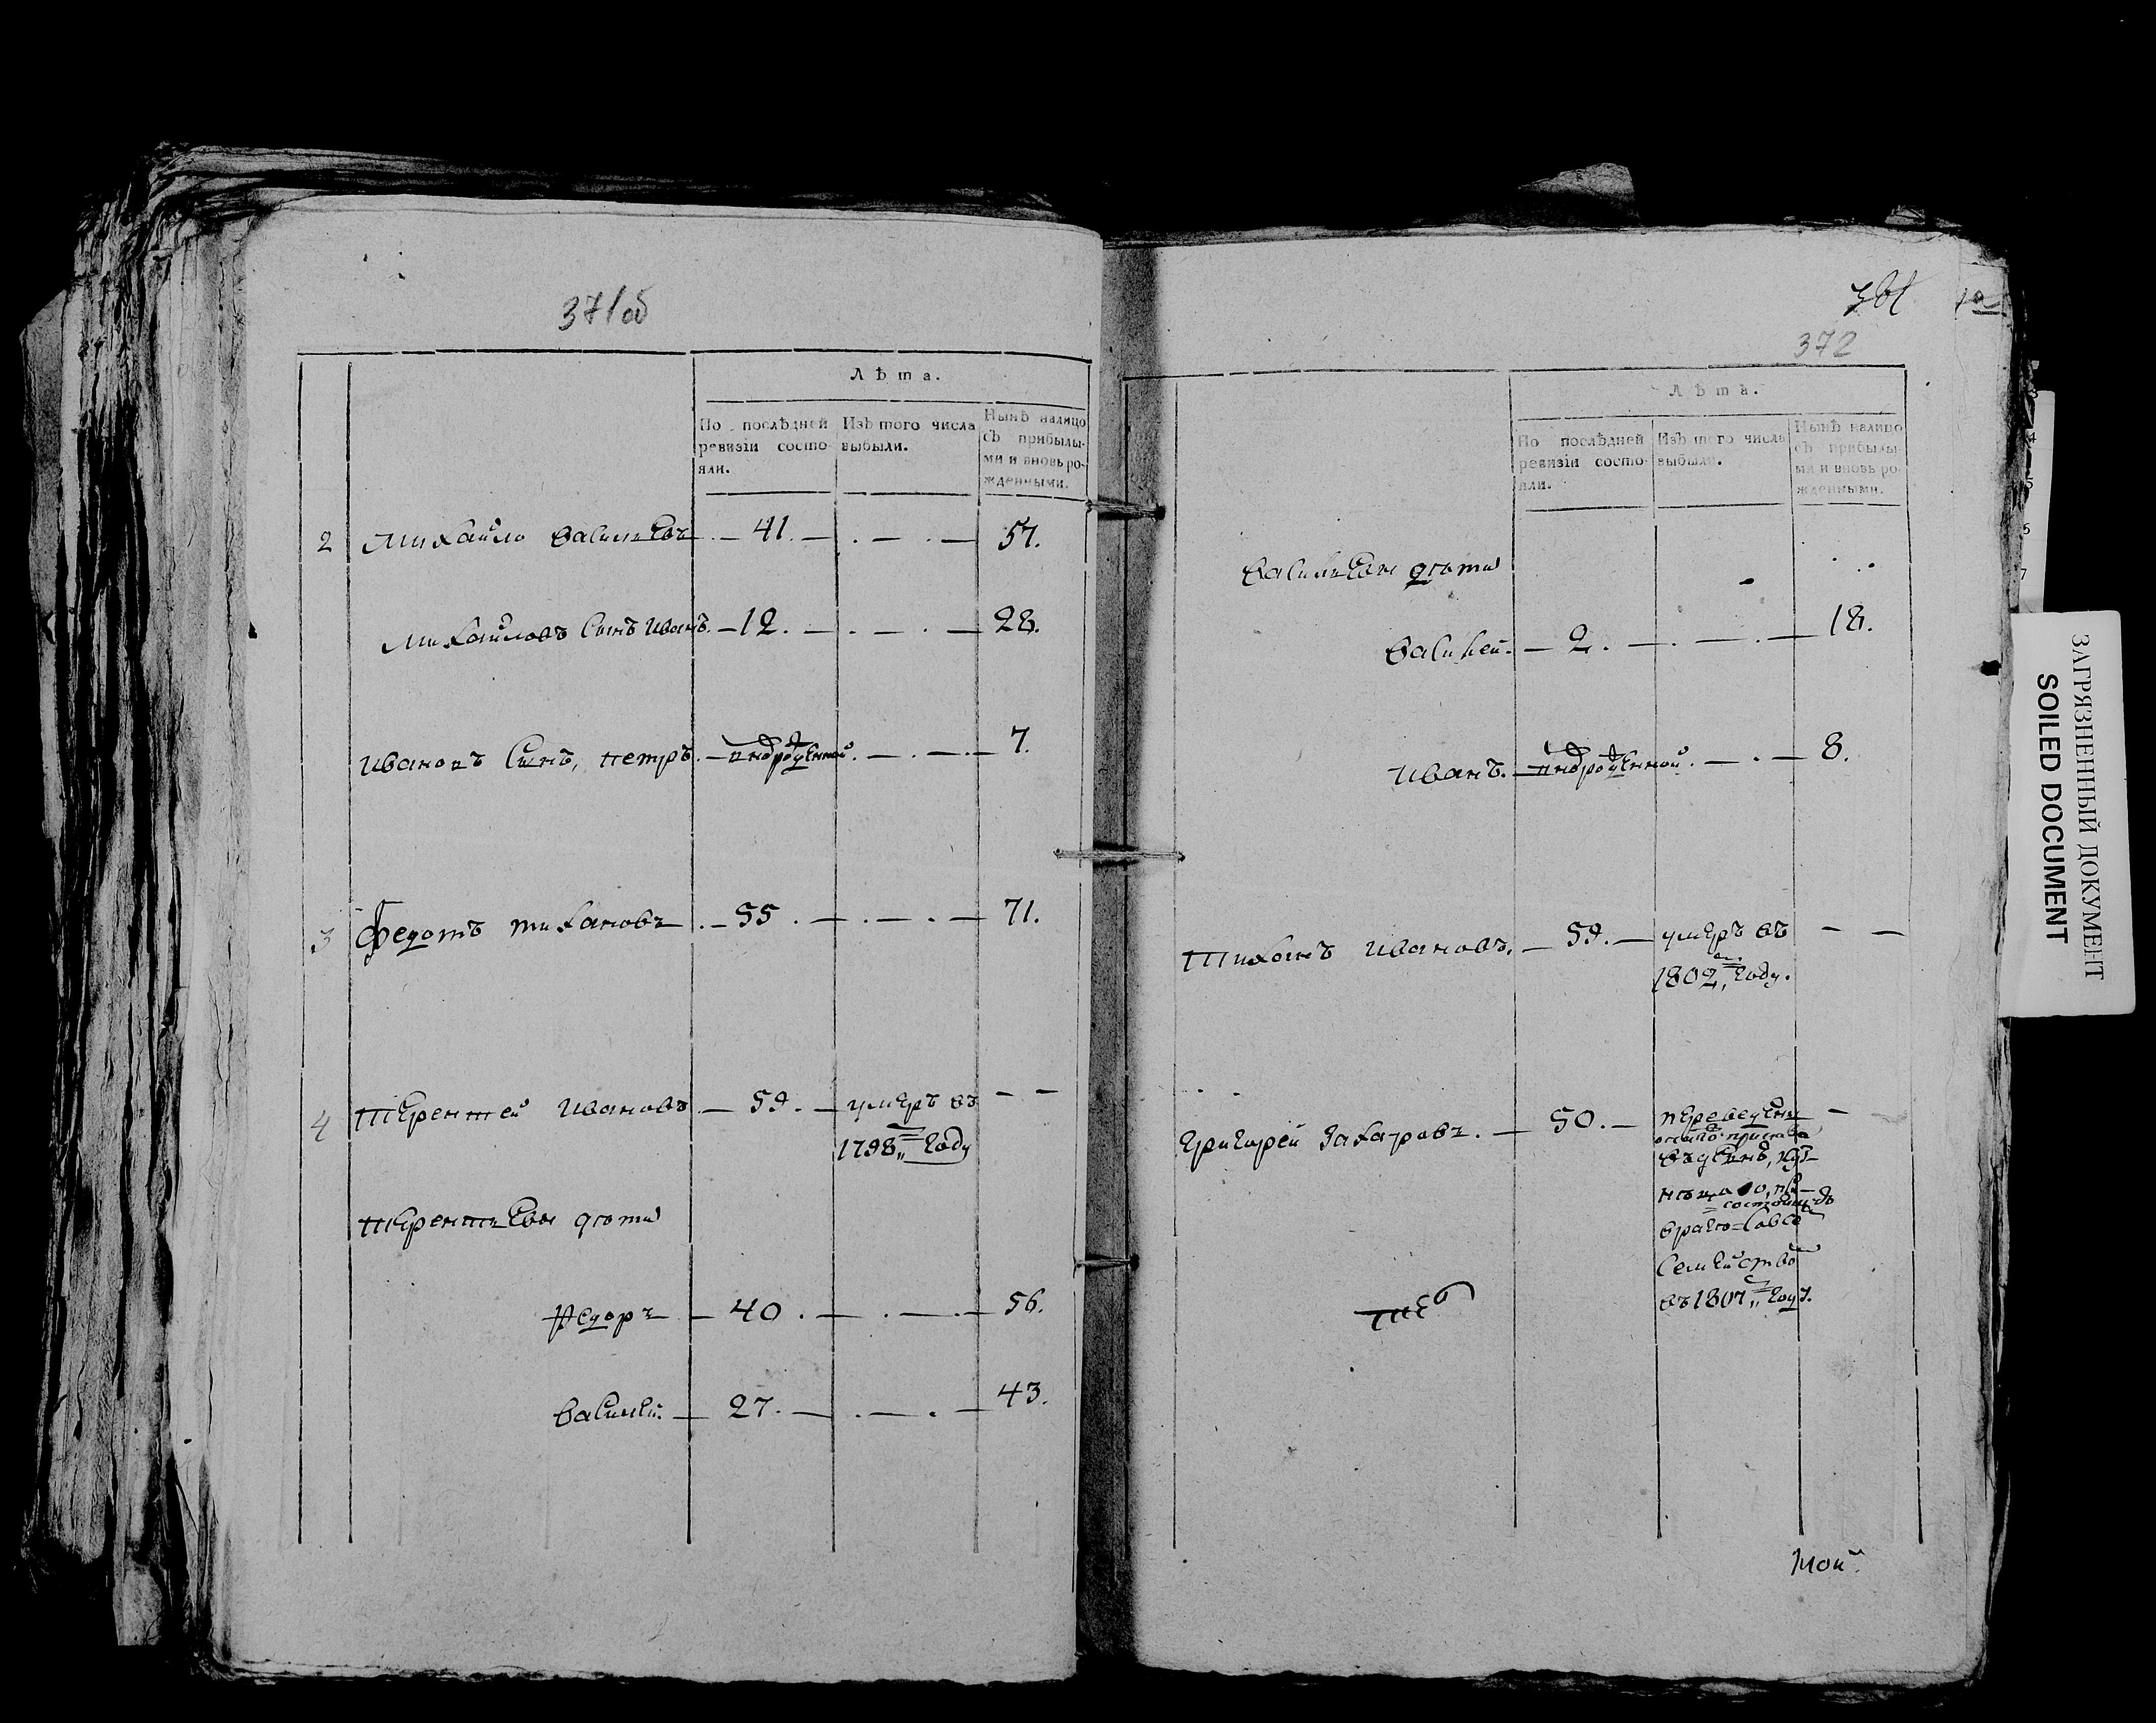 371об
Лѣта.
По послѣдней ревизіи состо-яли.
Изъ того числа выбыли.
Нынѣ налицо съ прибылы-ми и вновь ро-жденными.
2 Михайло Васильевъ — 41. — 57.
Михайловъ Сынъ Иванъ. — 12. — 28.
Ивановъ Сынъ, петръ. — — 7.
3 Федотъ тихановъ — 55. — 71.
4 Терентей Ивановъ — 59. — умеръ въ — —
1798„ году
Терентьевы дѣти
Федоръ — 40. — 56.
Василей. — 27. — 43.
372
Лѣта.
По послѣдней ревизіи состо-яли.
Изъ того числа выбыли.
Нынѣ налицо съ прибылы-ми и вновь ро-жденными.
Васильевы дѣти
Василей. — 2. — 18.
Иванъ. — — 8.
Тиханъ Ивановъ. — 59. — умеръ въ — —
1802„ году.
Григорей Захаровъ. — 50. — —
Семейство
въ 1807„ году.
ЗАГРЯЗНЕННЫЙ ДОКУМЕНТ
SOILED DOCUMENT